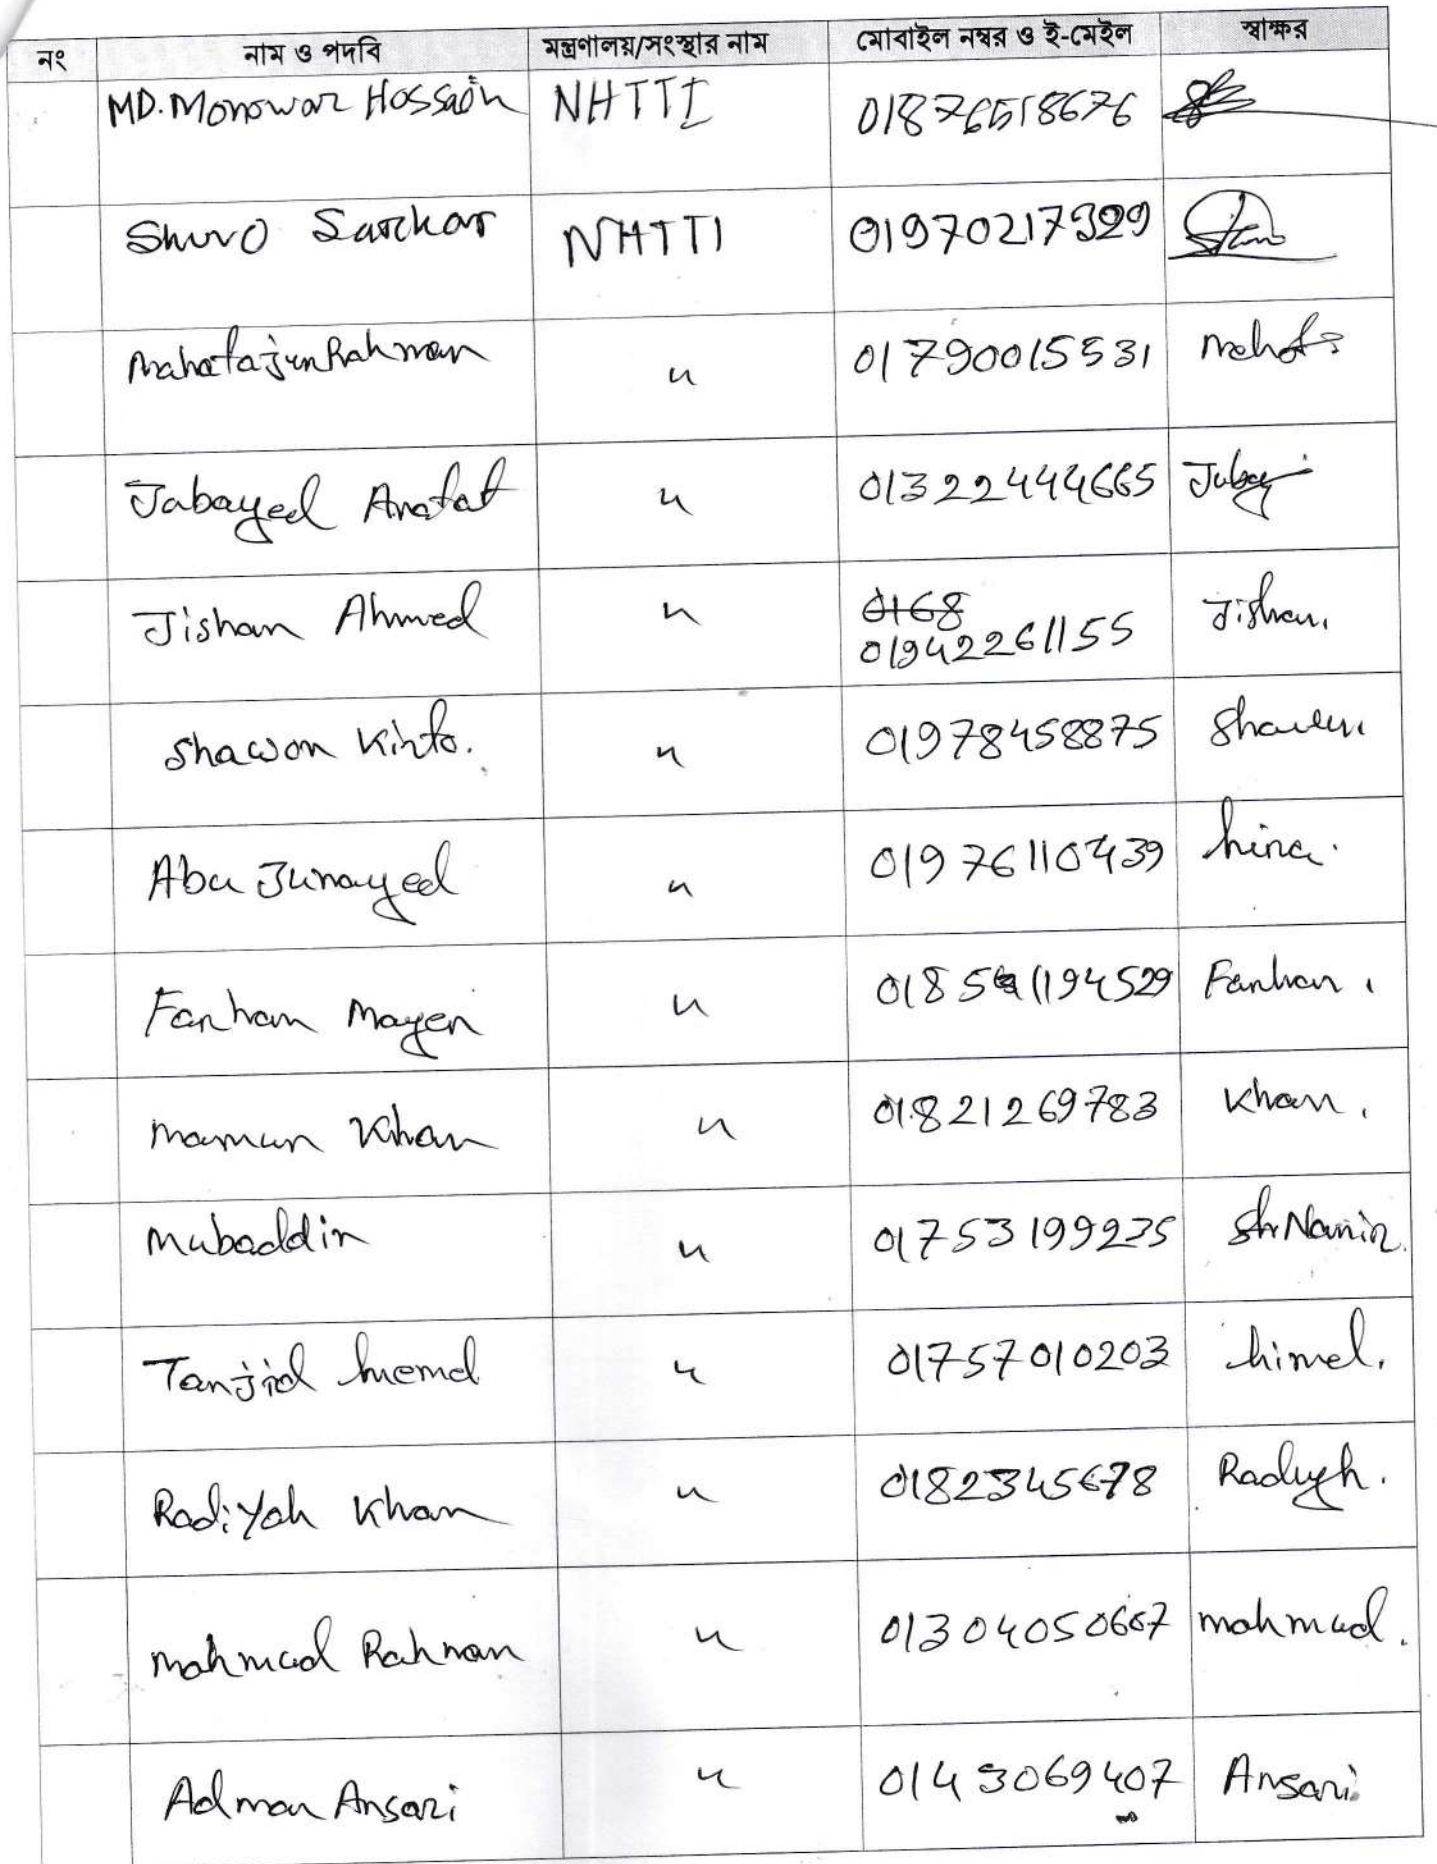 নং নাম ও পদবি মন্ত্রণালয়/সংস্থার নাম মোবাইল নম্বর ও ই-মেইল স্বাক্ষর
MD. Monowar Hossain NHTTI 01876518676
Shuvo Sarkar NHTTI 01970217329
Rahman " 01790015531
Jabayed Arafat " 01322444665
Jishan Ahmed " 0168 Jishan.
01942261155
Shawon Kinto. " 01978458875 Shawon.
Abu Junayed " 01976110439 hina.
Farhan Mayen " 0185 1194529 Farhan.
Mamun Khan " 01821269783 Khan.
Mubaddin " 01753199235
Tanjid " 01757010203 himel.
Radiyah Khan " 0182345678 Radiyah.
Mahmud Rahman " 01304050607 mahmud.
Adman Ansari " 0143069407 Ansari